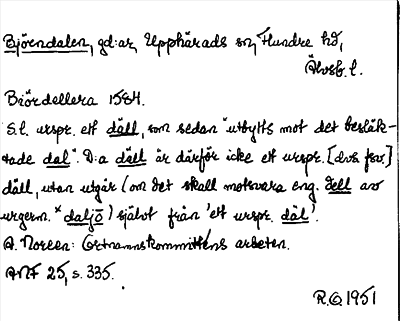 Björndalen, gd:ar, Upphärads sn, Flundre hd,
Älvsb. l.
Biördellera 1584.
S.l. urspr. ett däll, som sedan "utbytts mot det besläk-
tade dal". D:a däll är därför icke ett urspr. [dvs fsv.]
däll, utan utgår (om det skall motsvara eng. dell av
urgerm. *daljō) självt från 'ett urspr. däl'.
A. Noreen: Ortnamnskommitténs arbeten.
ANF 25, s. 335.
R.G 1951